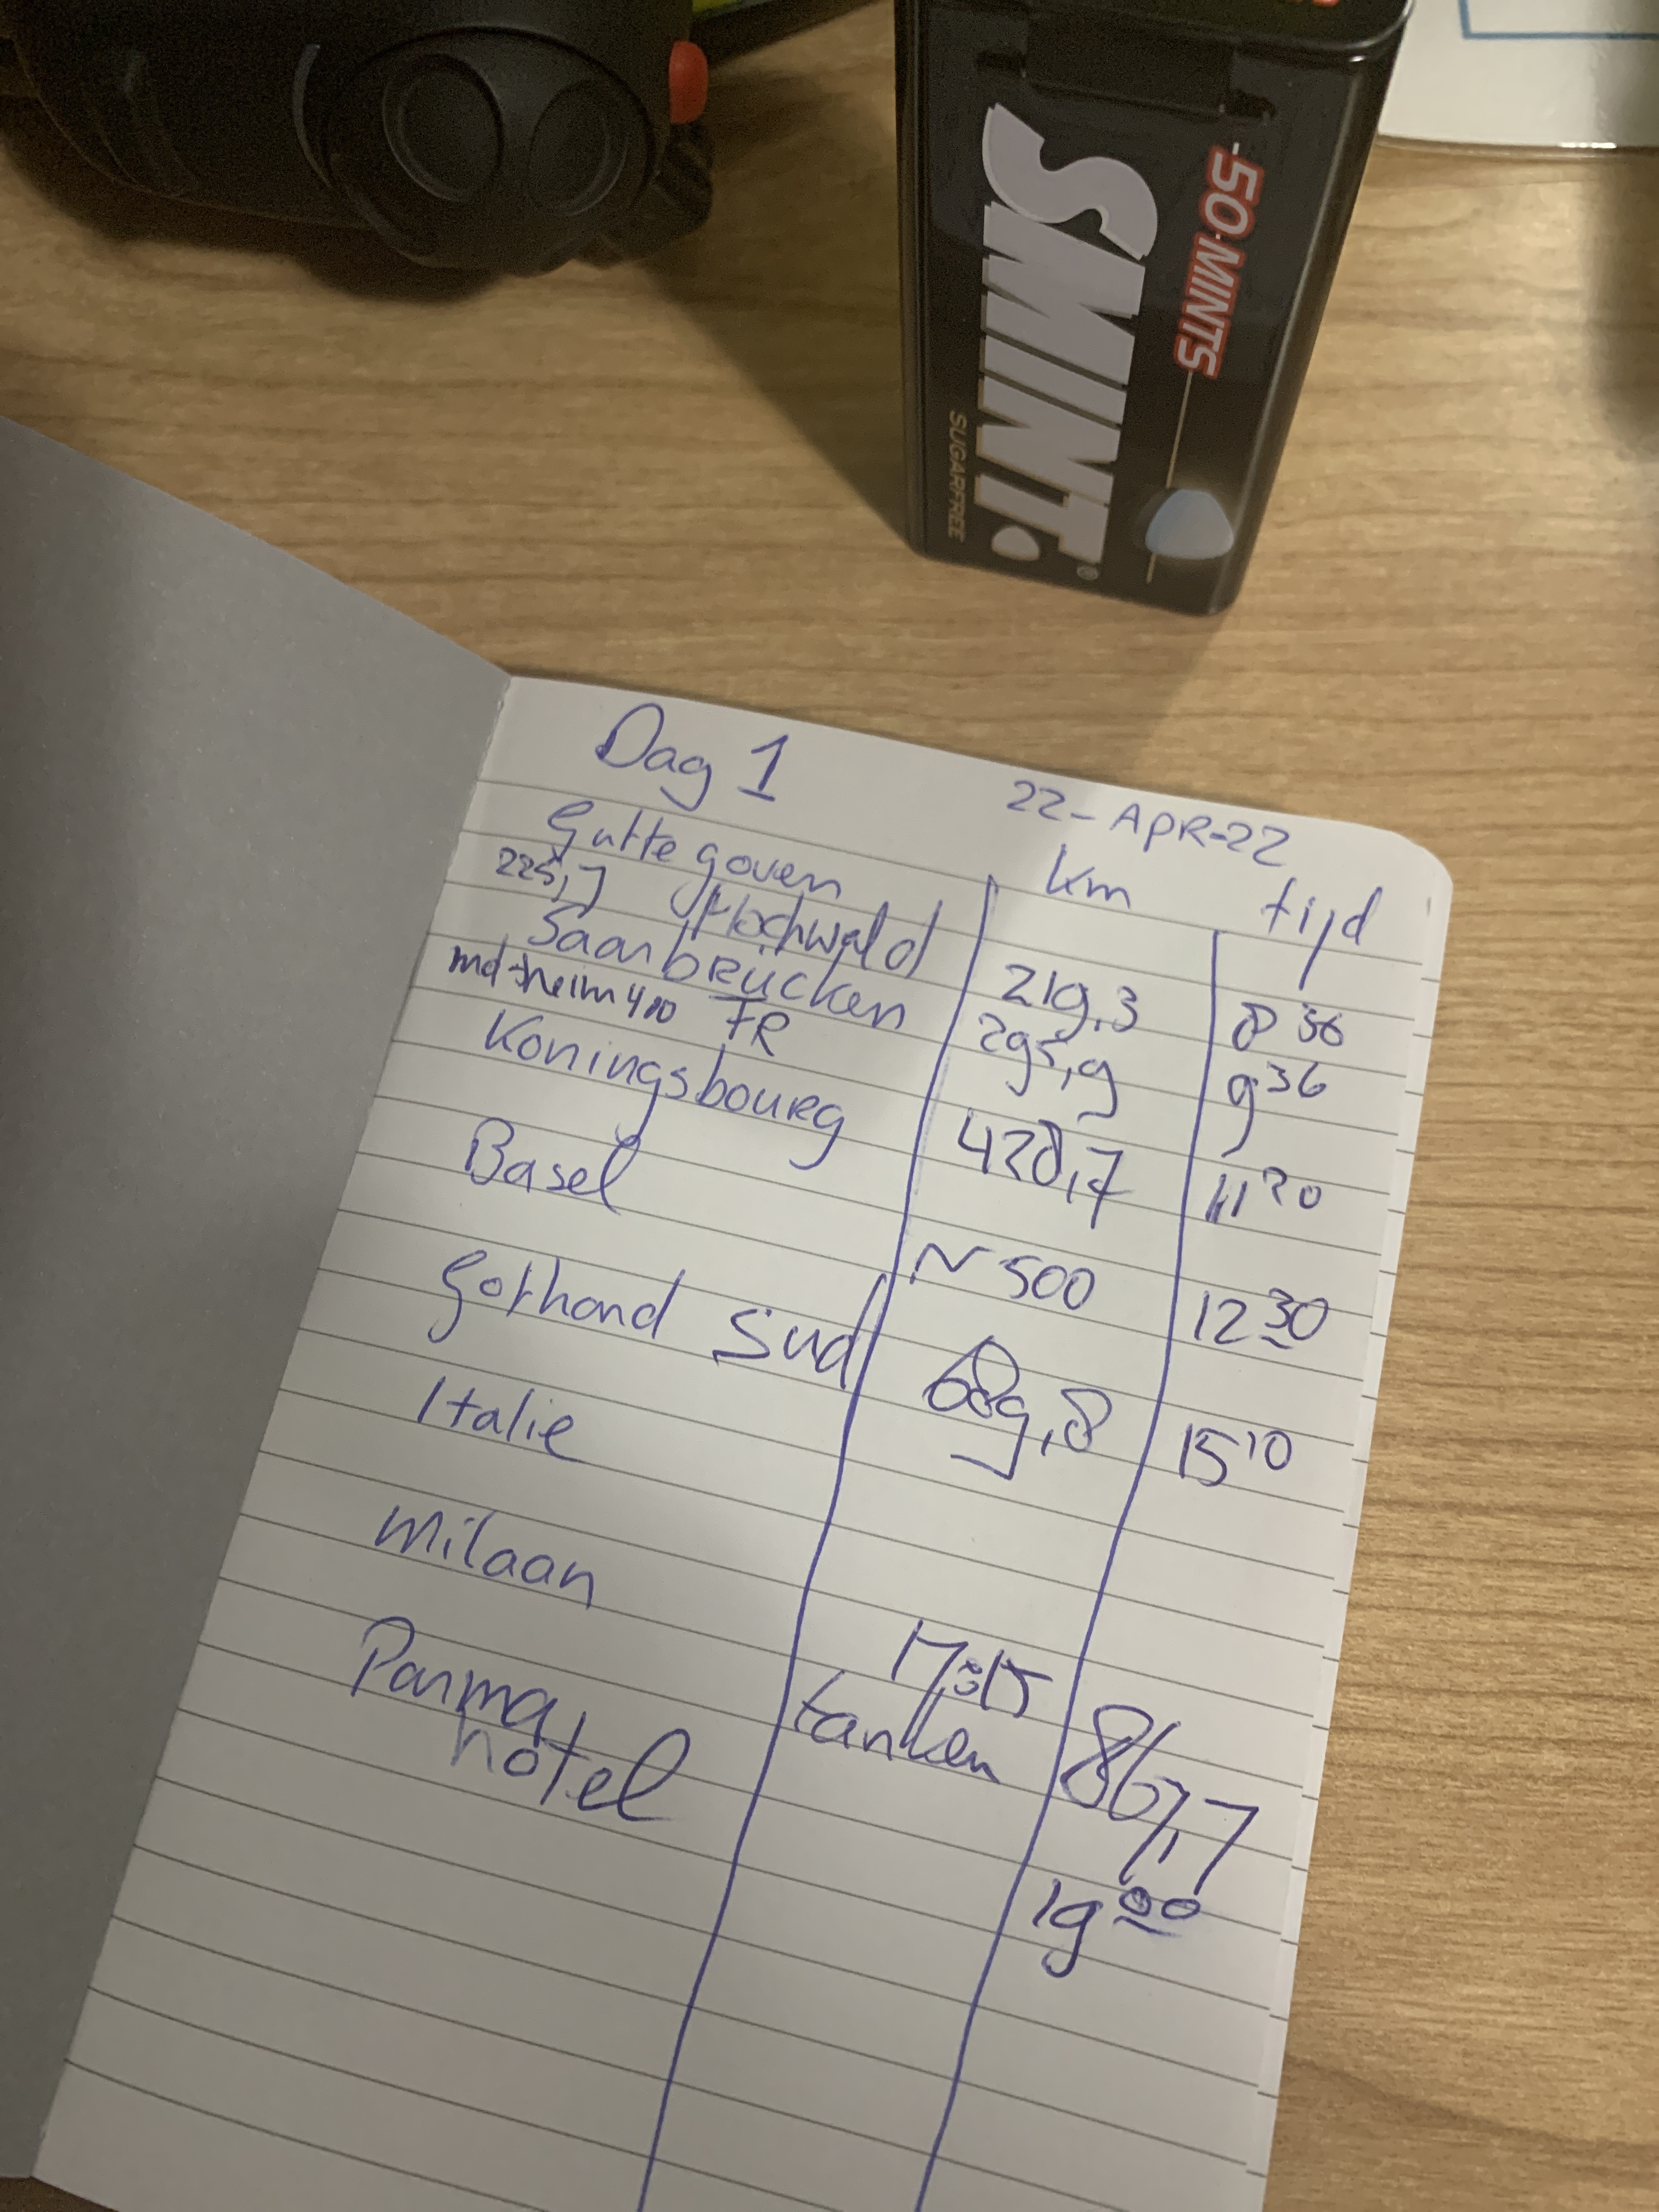 50 MINTS
SMINT®
SUGARFREE
Dag 1
22-APR-22
km tijd
Guttegoven
225,7 Hochwald 219,3 8 56
Saarbrücken 295,9 9 36
FR
Koningsbourg 428,7 11 20
Basel ~ 500 12 30
Gothard Süd 689,8 15 10
Italie
Milaan
17:15
Parma tanken 867,7
hotel 19 00